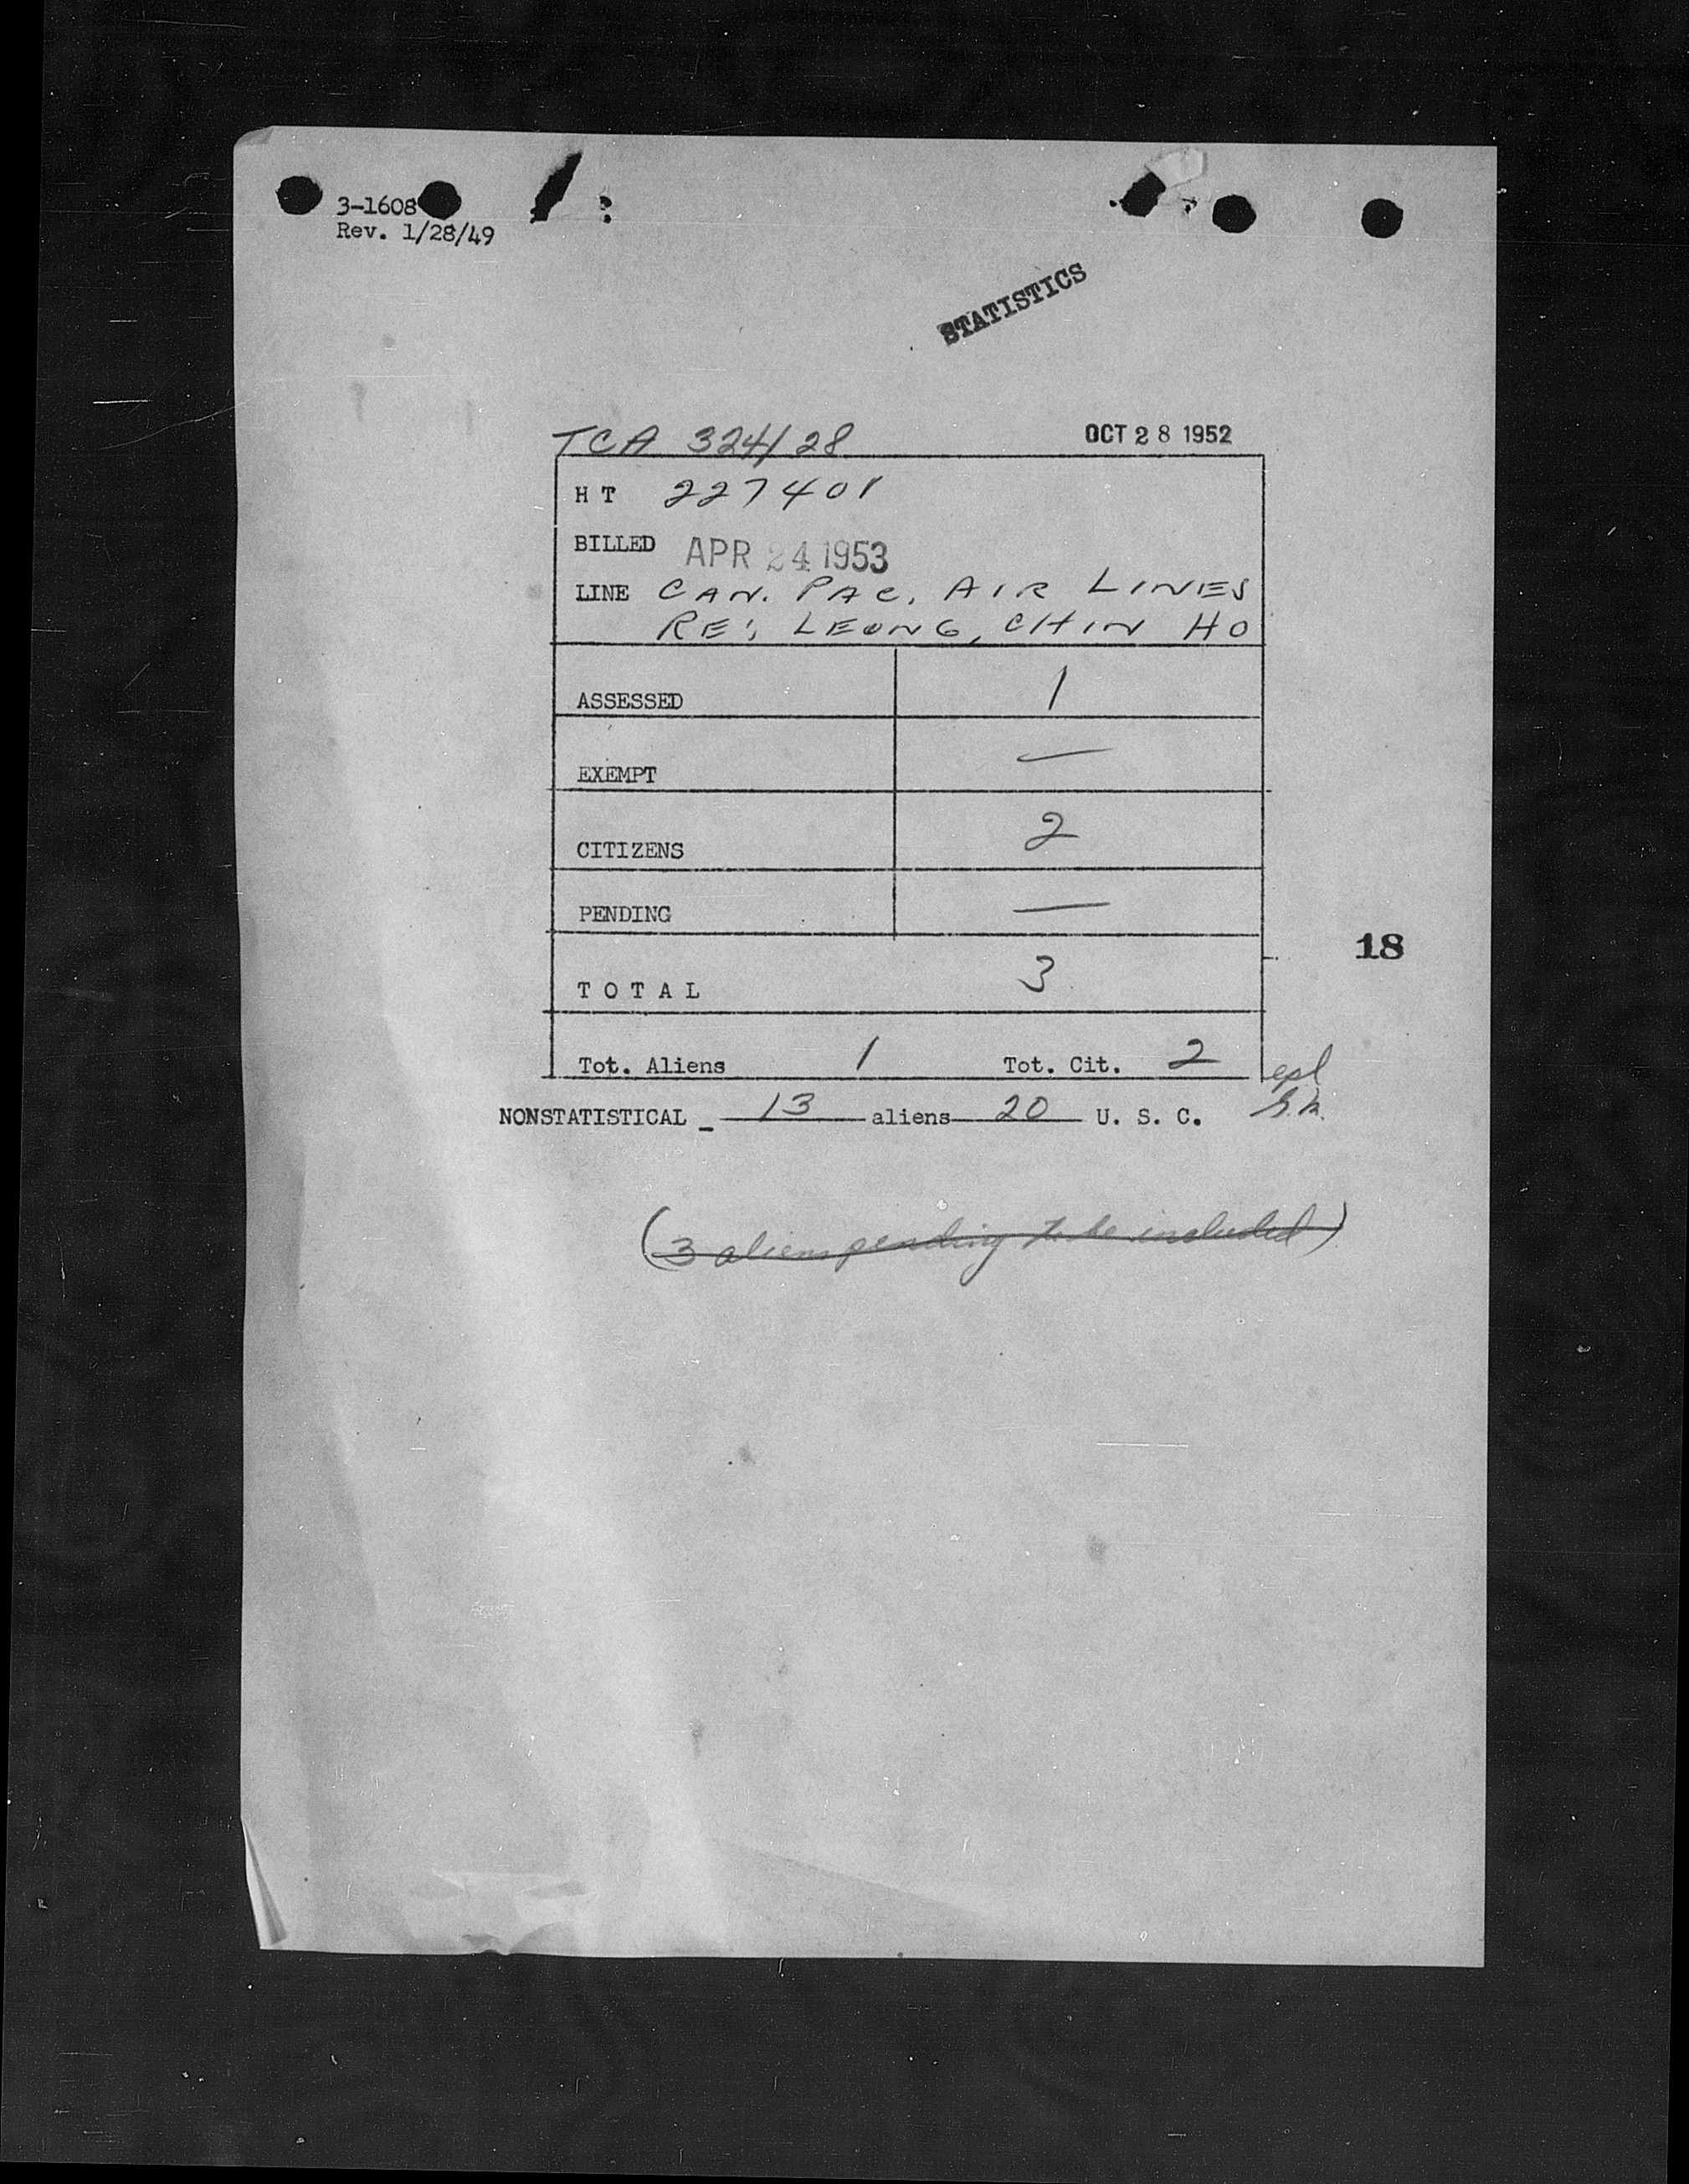 3-1608
Rev. 1/28/49
STATISTICS
TCA 324/28 OCT 28 1952
H T 227401
BILLED APR 24 1953
LINE CAN. PAC. AIR LINES
RE: LEONG, CHIN HO
ASSESSED 1
EXEMPT —
CITIZENS 2
PENDING —
18
T O T A L 3
Tot. Aliens 1 Tot. Cit. 2
NONSTATISTICAL _ 13 aliens 20 U. S. C.
(3 aliens pending to be included)